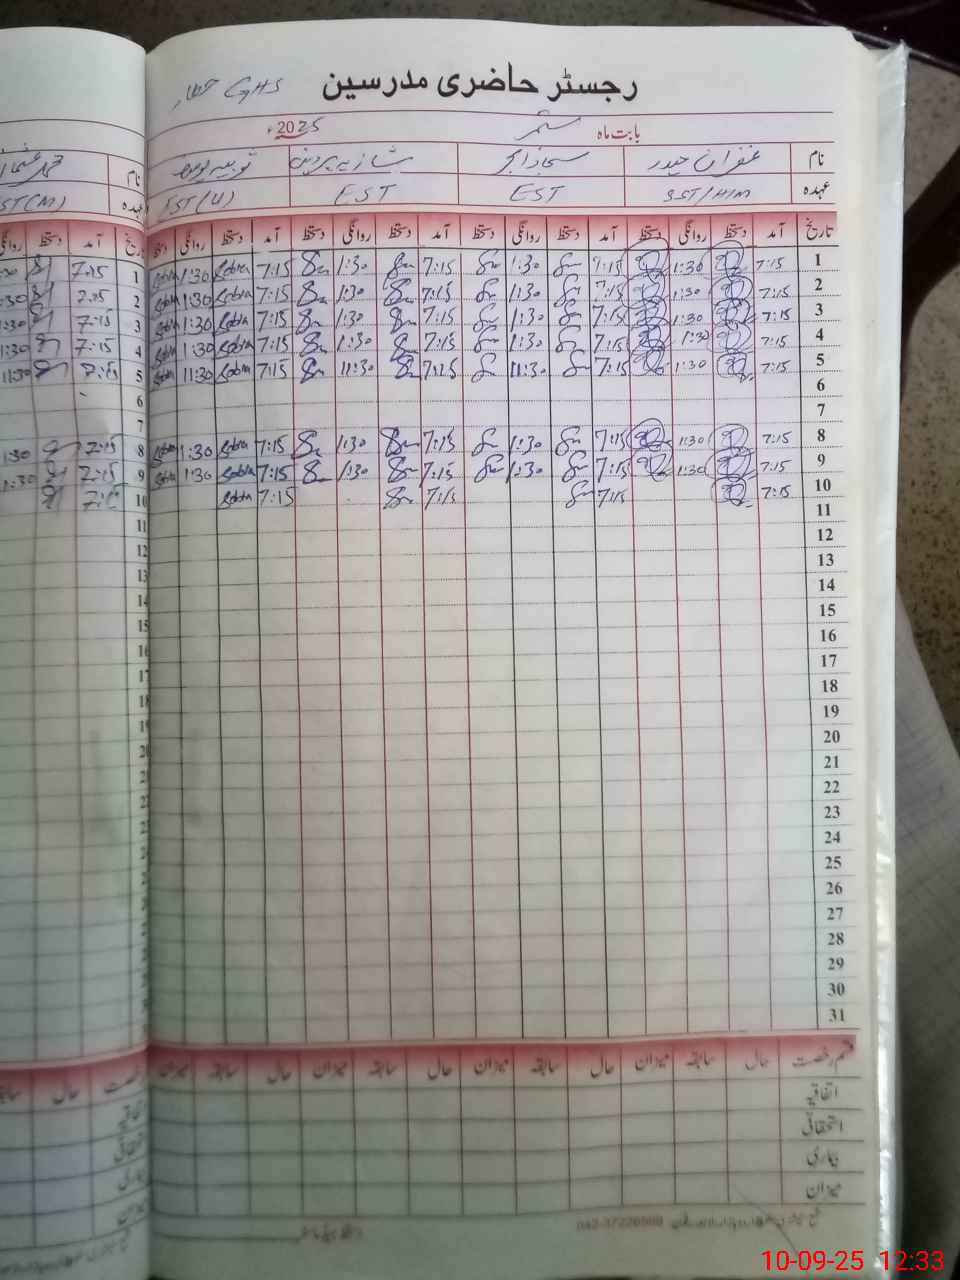 رجسٹر حاضری مدرسین GHS
بابت ماہ ستمبر 2025ء
نام غفران حیدر شازیہ پروین
عہدہ SST/HM EST EST EST(U)
تاریخ آمد دستخط روانگی دستخط آمد دستخط روانگی دستخط آمد دستخط روانگی دستخط آمد دستخط روانگی دستخط
1 7:15 1:30 7:15 1:30 7:15 1:30 7:15 Sobia 1:30 Sobia
2 7:15 1:30 7:15 1:30 7:15 1:30 7:15 Sobia 1:30 Sobia
3 7:15 1:30 7:15 1:30 7:15 1:30 7:15 Sobia 1:30 Sobia
4 7:15 1:30 7:15 1:30 7:15 1:30 7:15 Sobia 1:30 Sobia
5 7:15 1:30 7:15 11:30 7:15 11:30 7:15 Sobia 11:30 Sobia
6
7
8 7:15 1:30 7:15 1:30 7:15 1:30 7:15 Sobia 1:30 Sobia
9 7:15 1:30 7:15 1:30 7:15 1:30 7:15 Sobia 1:30 Sobia
10 7:15 7:15 7:15 7:15 Sobia
11
12
13
14
15
16
17
18
19
20
21
22
23
24
25
26
27
28
29
30
31
قسم رخصت حال سابقہ میزان حال سابقہ میزان حال سابقہ میزان حال سابقہ میزان
اتفاقیہ
استحقاقی
بیماری
میزان
042-37226500
نام
عہدہ EST(M)
تاریخ آمد دستخط روانگی
1 7:15 1:30
2 7:15 1:30
3 7:15 1:30
4 7:15 1:30
5 7:15 11:30
6
7
8 7:15 1:30
9 7:15 1:30
10 7:15
11
12
13
14
15
16
17
18
19
20
رخصت حال
اتفاقیہ
استحقاقی
بیماری
میزان
10-09-25 12:33